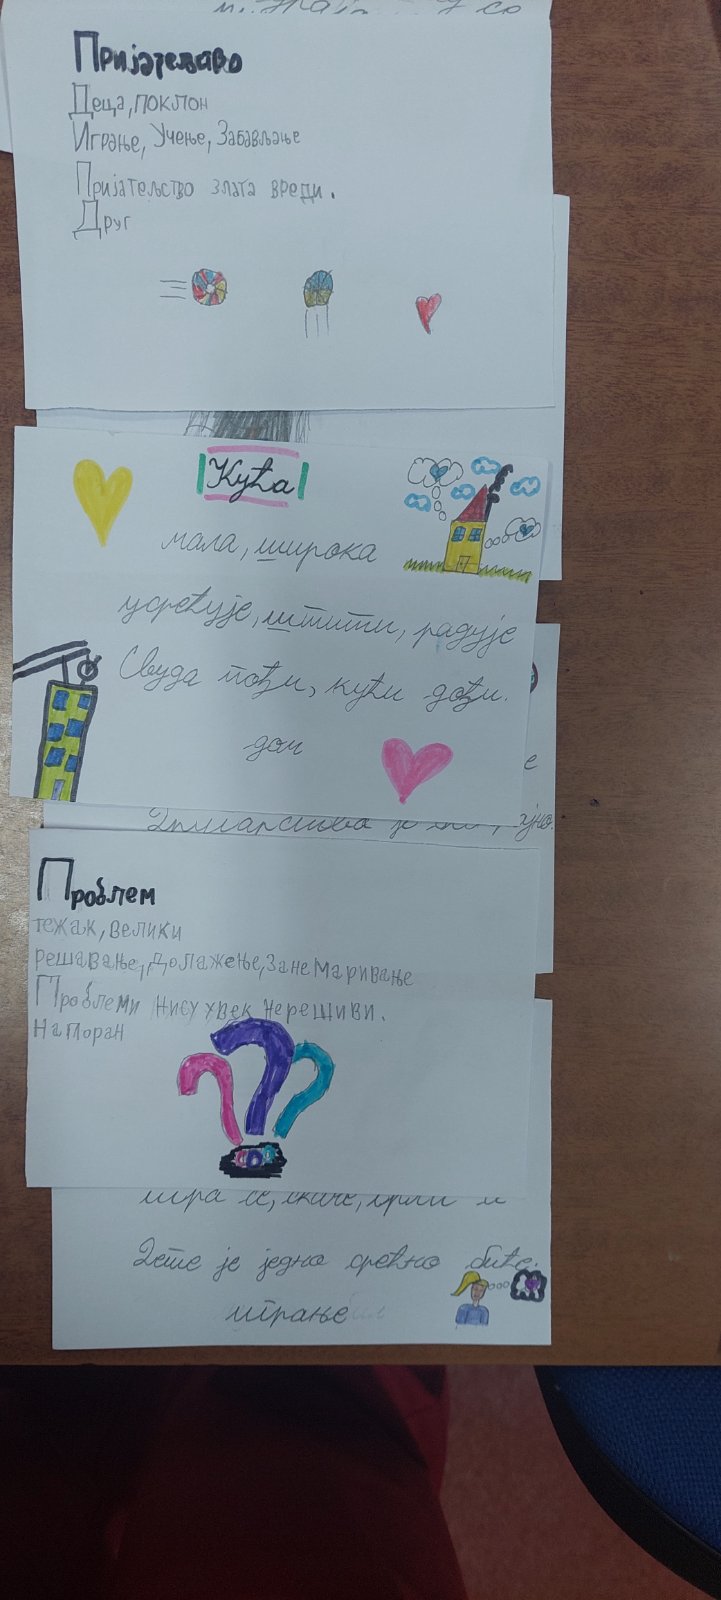 Пријатељство
Деца, поклон
Играње, Учење, Забављање
Пријатељство злата вреди.
Друг
Кућа
мала, широка
усрећује, штити, радује
Свуда пођи, кући дођи.
дом
е
Проблем
тежак, велики
решавање, долажење, занемаривање
Проблеми нису увек нерешиви.
Напоран
игра се, скаче, грли
Дете је једно срећно биће.
играње